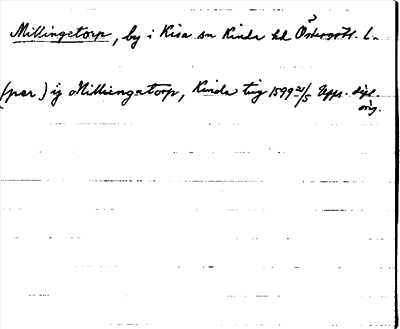 Millingetorp, by i Kisa sn Kinda hd Östergötl. l.
(per) ij Millingatorp, Kinda ting 1599 21/5 Upps. dipl. orig.